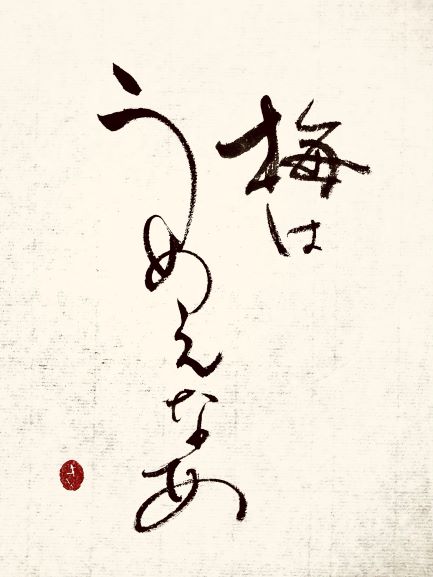 梅は
うめえなあ